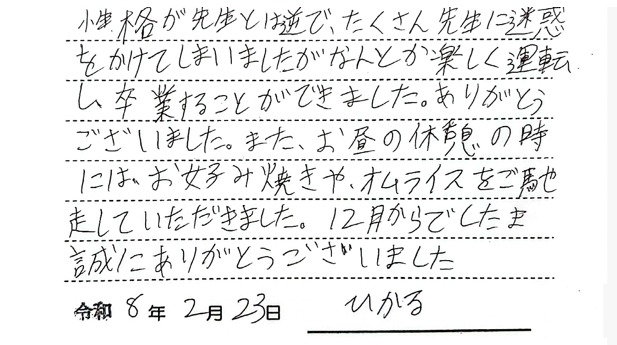 性格が先生とは逆で、たくさん先生に迷惑
をかけてしまいましたがなんとか楽しく運転
し卒業することができました。ありがとう
ございました。また、お昼の休憩の時
には、お好み焼きや、オムライスをご馳
走していただきました。12月からでしたま
誠にありがとうございました
令和 8年 2月 23日 ひかる